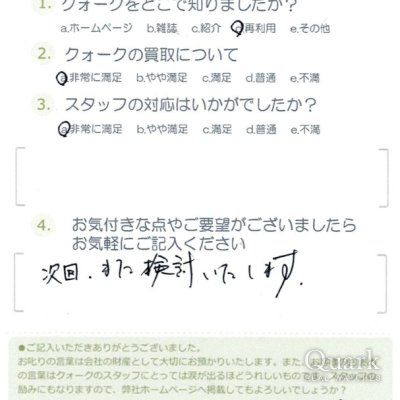 1. クォークをどこで知りましたか？
a.ホームページ b.雑誌 c.紹介 d.再利用 e.その他
2. クォークの買取について
a.非常に満足 b.やや満足 c.満足 d.普通 e.不満
3. スタッフの対応はいかがでしたか？
a.非常に満足 b.やや満足 c.満足 d.普通 e.不満
4. お気付きな点やご要望がございましたら
お気軽にご記入ください
次回、また検討いたします。
●ご記入いただきありがとうございました。
お叱りの言葉は会社の財産として大切にお預かりいたします。また、お
の言葉はクォークのスタッフにとっては涙が出るほどうれしいもので
励みにもなりますので、弊社ホームページへ掲載してもよろしいでしょうか？
Quark